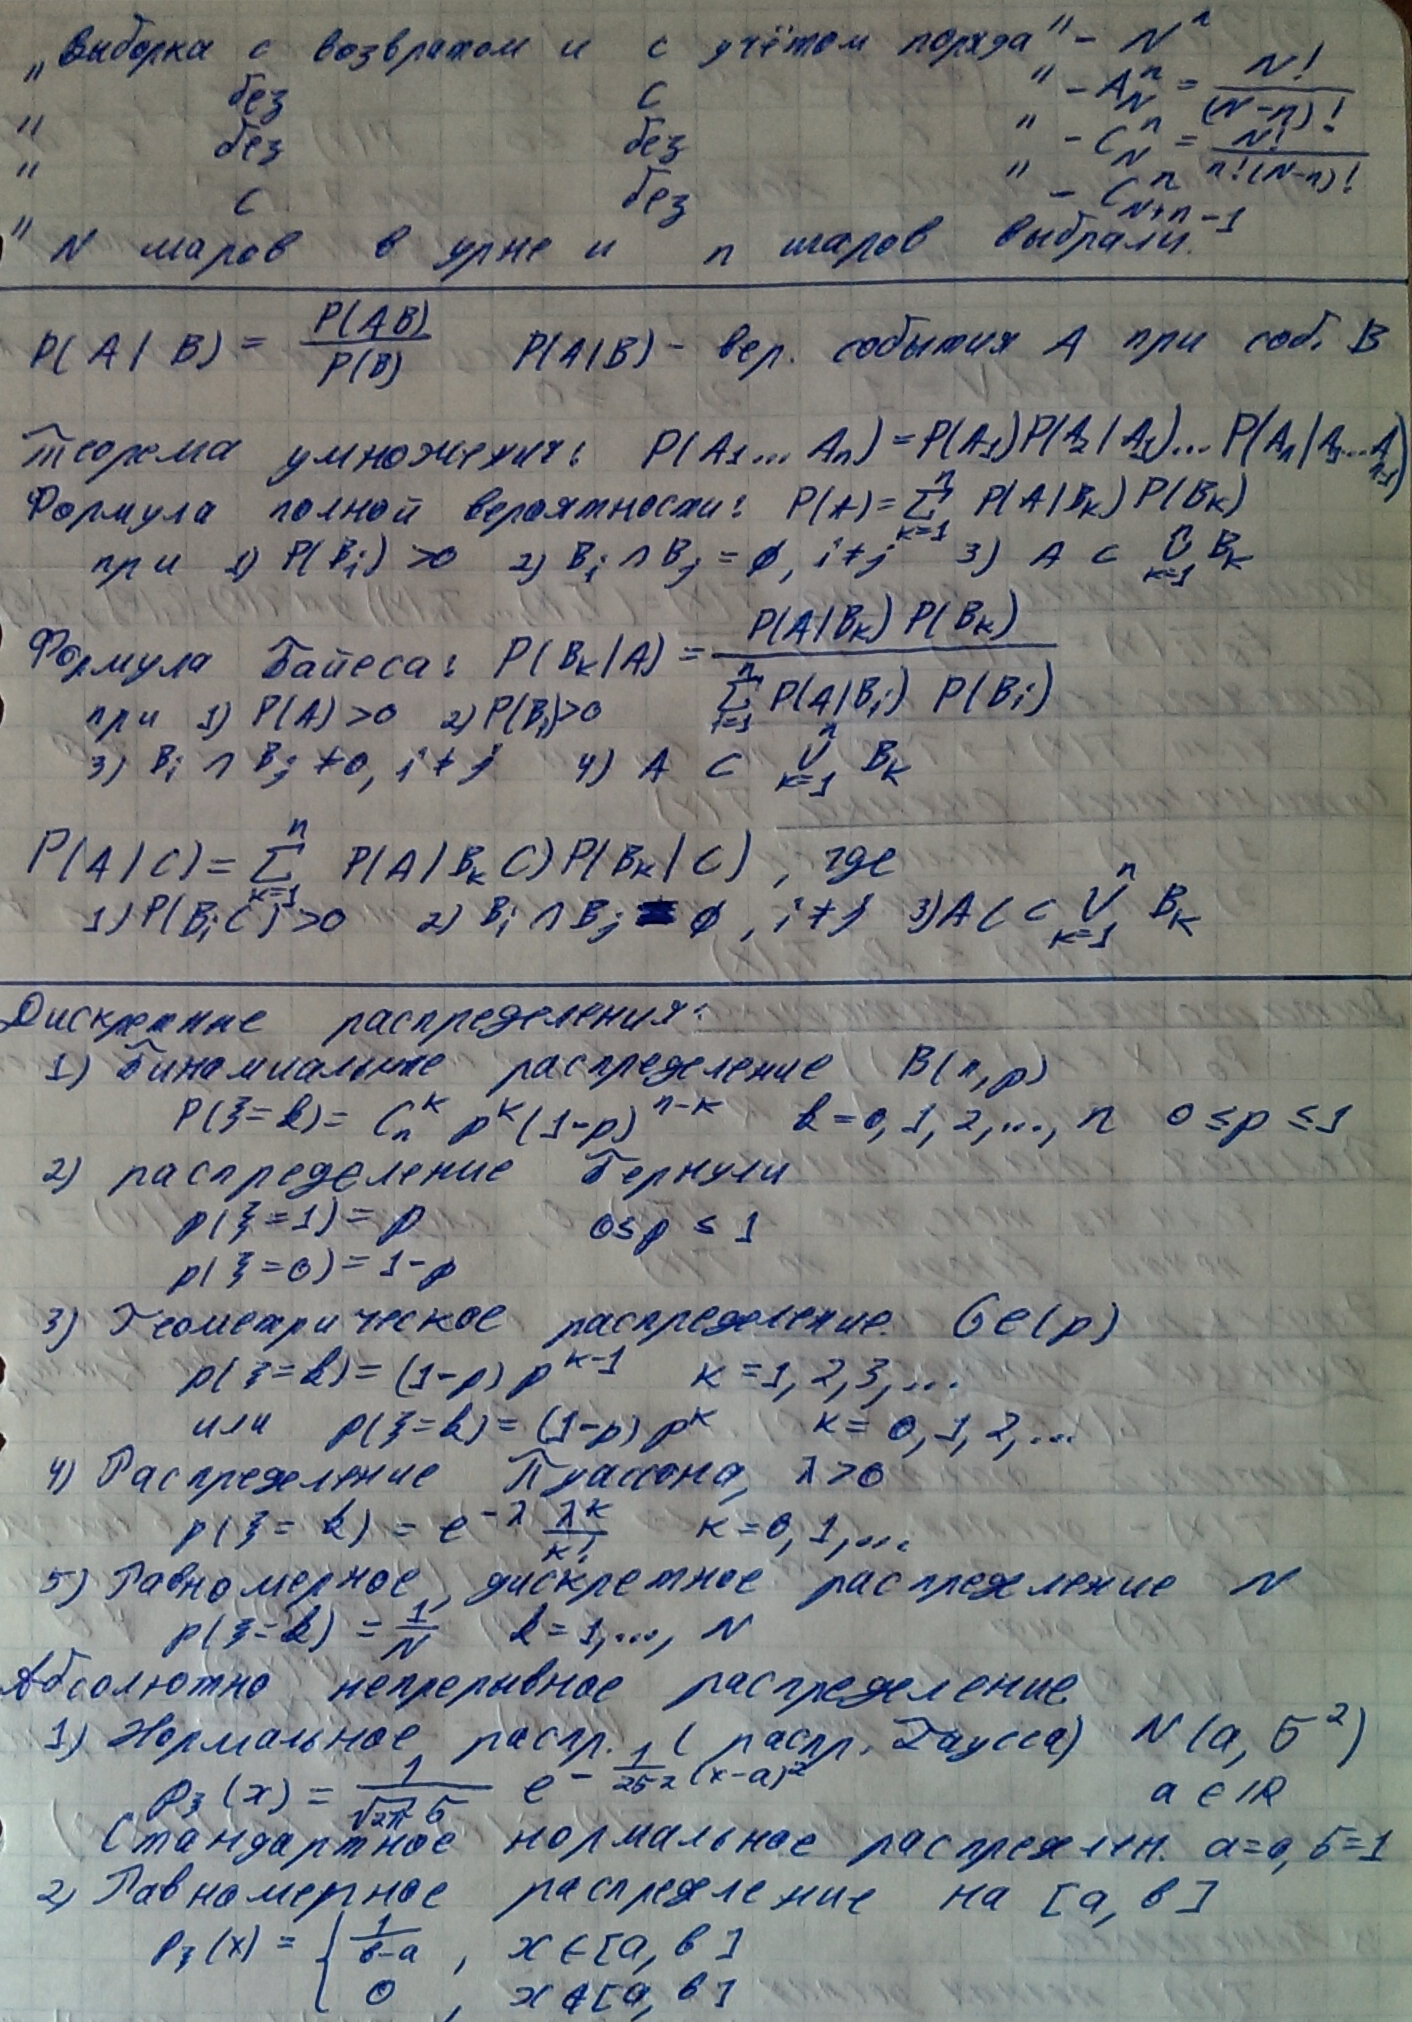 „Выборка с возвратом и с учётом поряда" - N^n
" без с " - A_N^n = N!/(N-n)!
" без без " - C_N^n = N!/(n!(N-n)!)
" с без " - C_{N+n-1}^n
N шаров в урне и n шаров выбрали.
P(A|B) = P(AB)/P(B) P(A|B) - вер. события A при соб. B
Теорема умножения: P(A_1...A_n) = P(A_1)P(A_2|A_1)...P(A_n|A_1...A_{n-1})
Формула полной вероятности: P(A) = ∑_{k=1}^n P(A|B_k) P(B_k)
при 1) P(B_i) > 0 2) B_i ∩ B_j = ∅, i ≠ j 3) A ⊂ ∪_{k=1}^n B_k
Формула Байеса: P(B_k|A) = P(A|B_k) P(B_k) / ∑_{i=1}^n P(A|B_i) P(B_i)
при 1) P(A) > 0 2) P(B_i) > 0
3) B_i ∩ B_j ≠ 0, i ≠ j 4) A ⊂ ∪_{k=1}^n B_k
P(A|C) = ∑_{k=1}^n P(A|B_k C) P(B_k|C), где
1) P(B_i C) > 0 2) B_i ∩ B_j = ∅, i ≠ j 3) AC ⊂ ∪_{k=1}^n B_k
Дискретные распределения:
1) Биномиальные распределение B(n,p)
P(ξ=k) = C_n^k p^k (1-p)^{n-k} k=0,1,2,...,n 0 ≤ p ≤ 1
2) распределение Бернули
p(ξ=1) = p 0 ≤ p ≤ 1
p(ξ=0) = 1-p
3) Геометрическое распределение. Ge(p)
p(ξ=k) = (1-p) p^{k-1} k=1,2,3,...
или p(ξ=k) = (1-p) p^k k=0,1,2,...
4) Распределение Пуассона, λ>0
p(ξ=k) = e^{-λ} λ^k/k! k=0,1,...
5) Равномерное, дискретное распределение N
p(ξ=k) = 1/N k=1,...,N
Абсолютно непрерывное распределение
1) Нормальное распр. (распр. Гаусса) N(a,σ^2)
p_ξ(x) = 1/(√2π σ) e^{-1/(2σ^2) (x-a)^2} a ∈ ℝ
Стандартное нормальное распределен. a=0, σ=1
2) Равномерное распределение на [a, в]
p_ξ(x) = { 1/(в-a), x ∈ [a, в]
0, x ∉ [a, в]